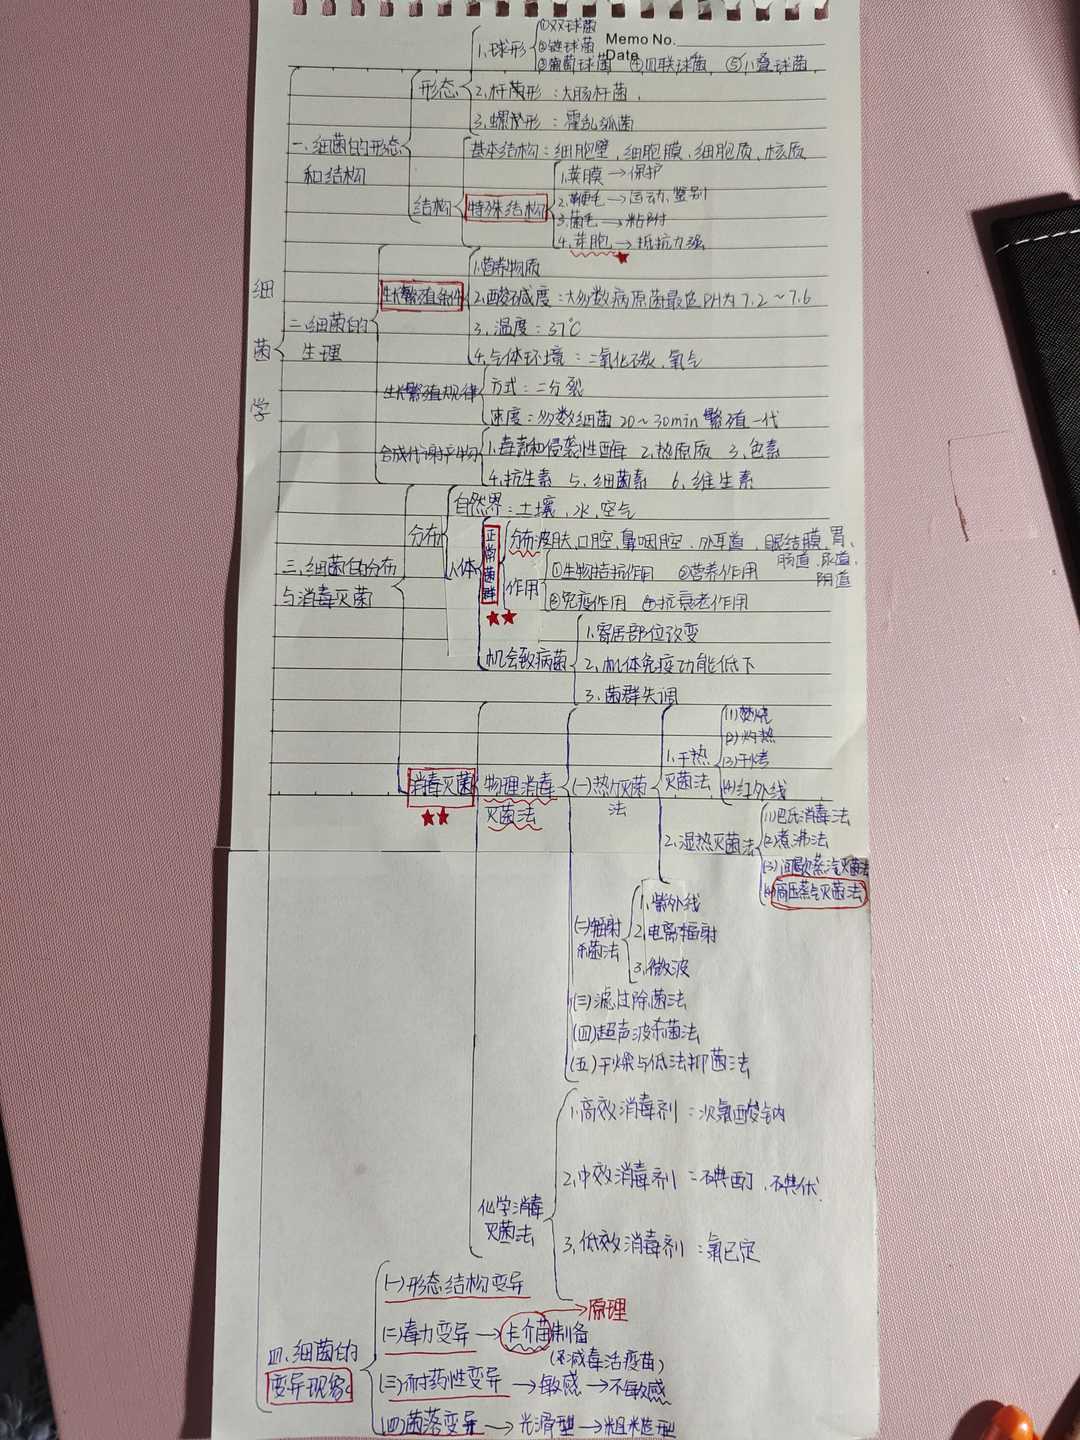 Memo No.
Date
细菌学
一、细菌的形态和结构
形态
1、球形
①双球菌
②链球菌
③葡萄球菌 ④四联球菌 ⑤八叠球菌
2、杆菌形：大肠杆菌
3、螺形：霍乱弧菌
结构
基本结构：细胞壁、细胞膜、细胞质、核质
特殊结构
1、荚膜→保护
2、鞭毛→运动、鉴别
3、菌毛→粘附
4、芽胞→抵抗力强
二、细菌的生理
生长繁殖条件
1、营养物质
2、酸碱度：大多数病原菌最适PH为7.2~7.6
3、温度：37℃
4、气体环境：二氧化碳、氧气
生长繁殖规律
方式：二分裂
速度：多数细菌20~30min繁殖一代
合成代谢产物
1、毒素和侵袭性酶 2、热原质 3、色素
4、抗生素 5、细菌素 6、维生素
三、细菌的分布与消毒灭菌
分布
自然界：土壤、水、空气
人体
正常菌群
分布：皮肤、口腔、鼻咽腔、外耳道、眼结膜、胃、肠道、尿道、阴道
作用
①生物拮抗作用 ②营养作用
③免疫作用 ④抗衰老作用
机会致病菌
1、寄居部位改变
2、机体免疫功能低下
3、菌群失调
消毒灭菌
物理消毒灭菌法
(一)热力灭菌法
1、干热灭菌法
(1)焚烧
(2)灼热
(3)干烤
(4)红外线
2、湿热灭菌法
(1)巴氏消毒法
(2)煮沸法
(3)间歇蒸汽灭菌法
(4)高压蒸气灭菌法
(二)辐射杀菌法
1、紫外线
2、电离辐射
3、微波
(三)滤过除菌法
(四)超声波杀菌法
(五)干燥与低法抑菌法
化学消毒灭菌法
1、高效消毒剂：次氯酸钠
2、中效消毒剂：碘酊、碘伏
3、低效消毒剂：氯已定
四、细菌的变异现象
(一)形态结构变异
(二)毒力变异→卡介苗制备→原理
(减毒活疫苗)
(三)耐药性变异→敏感→不敏感
(四)菌落变异→光滑型→粗糙型